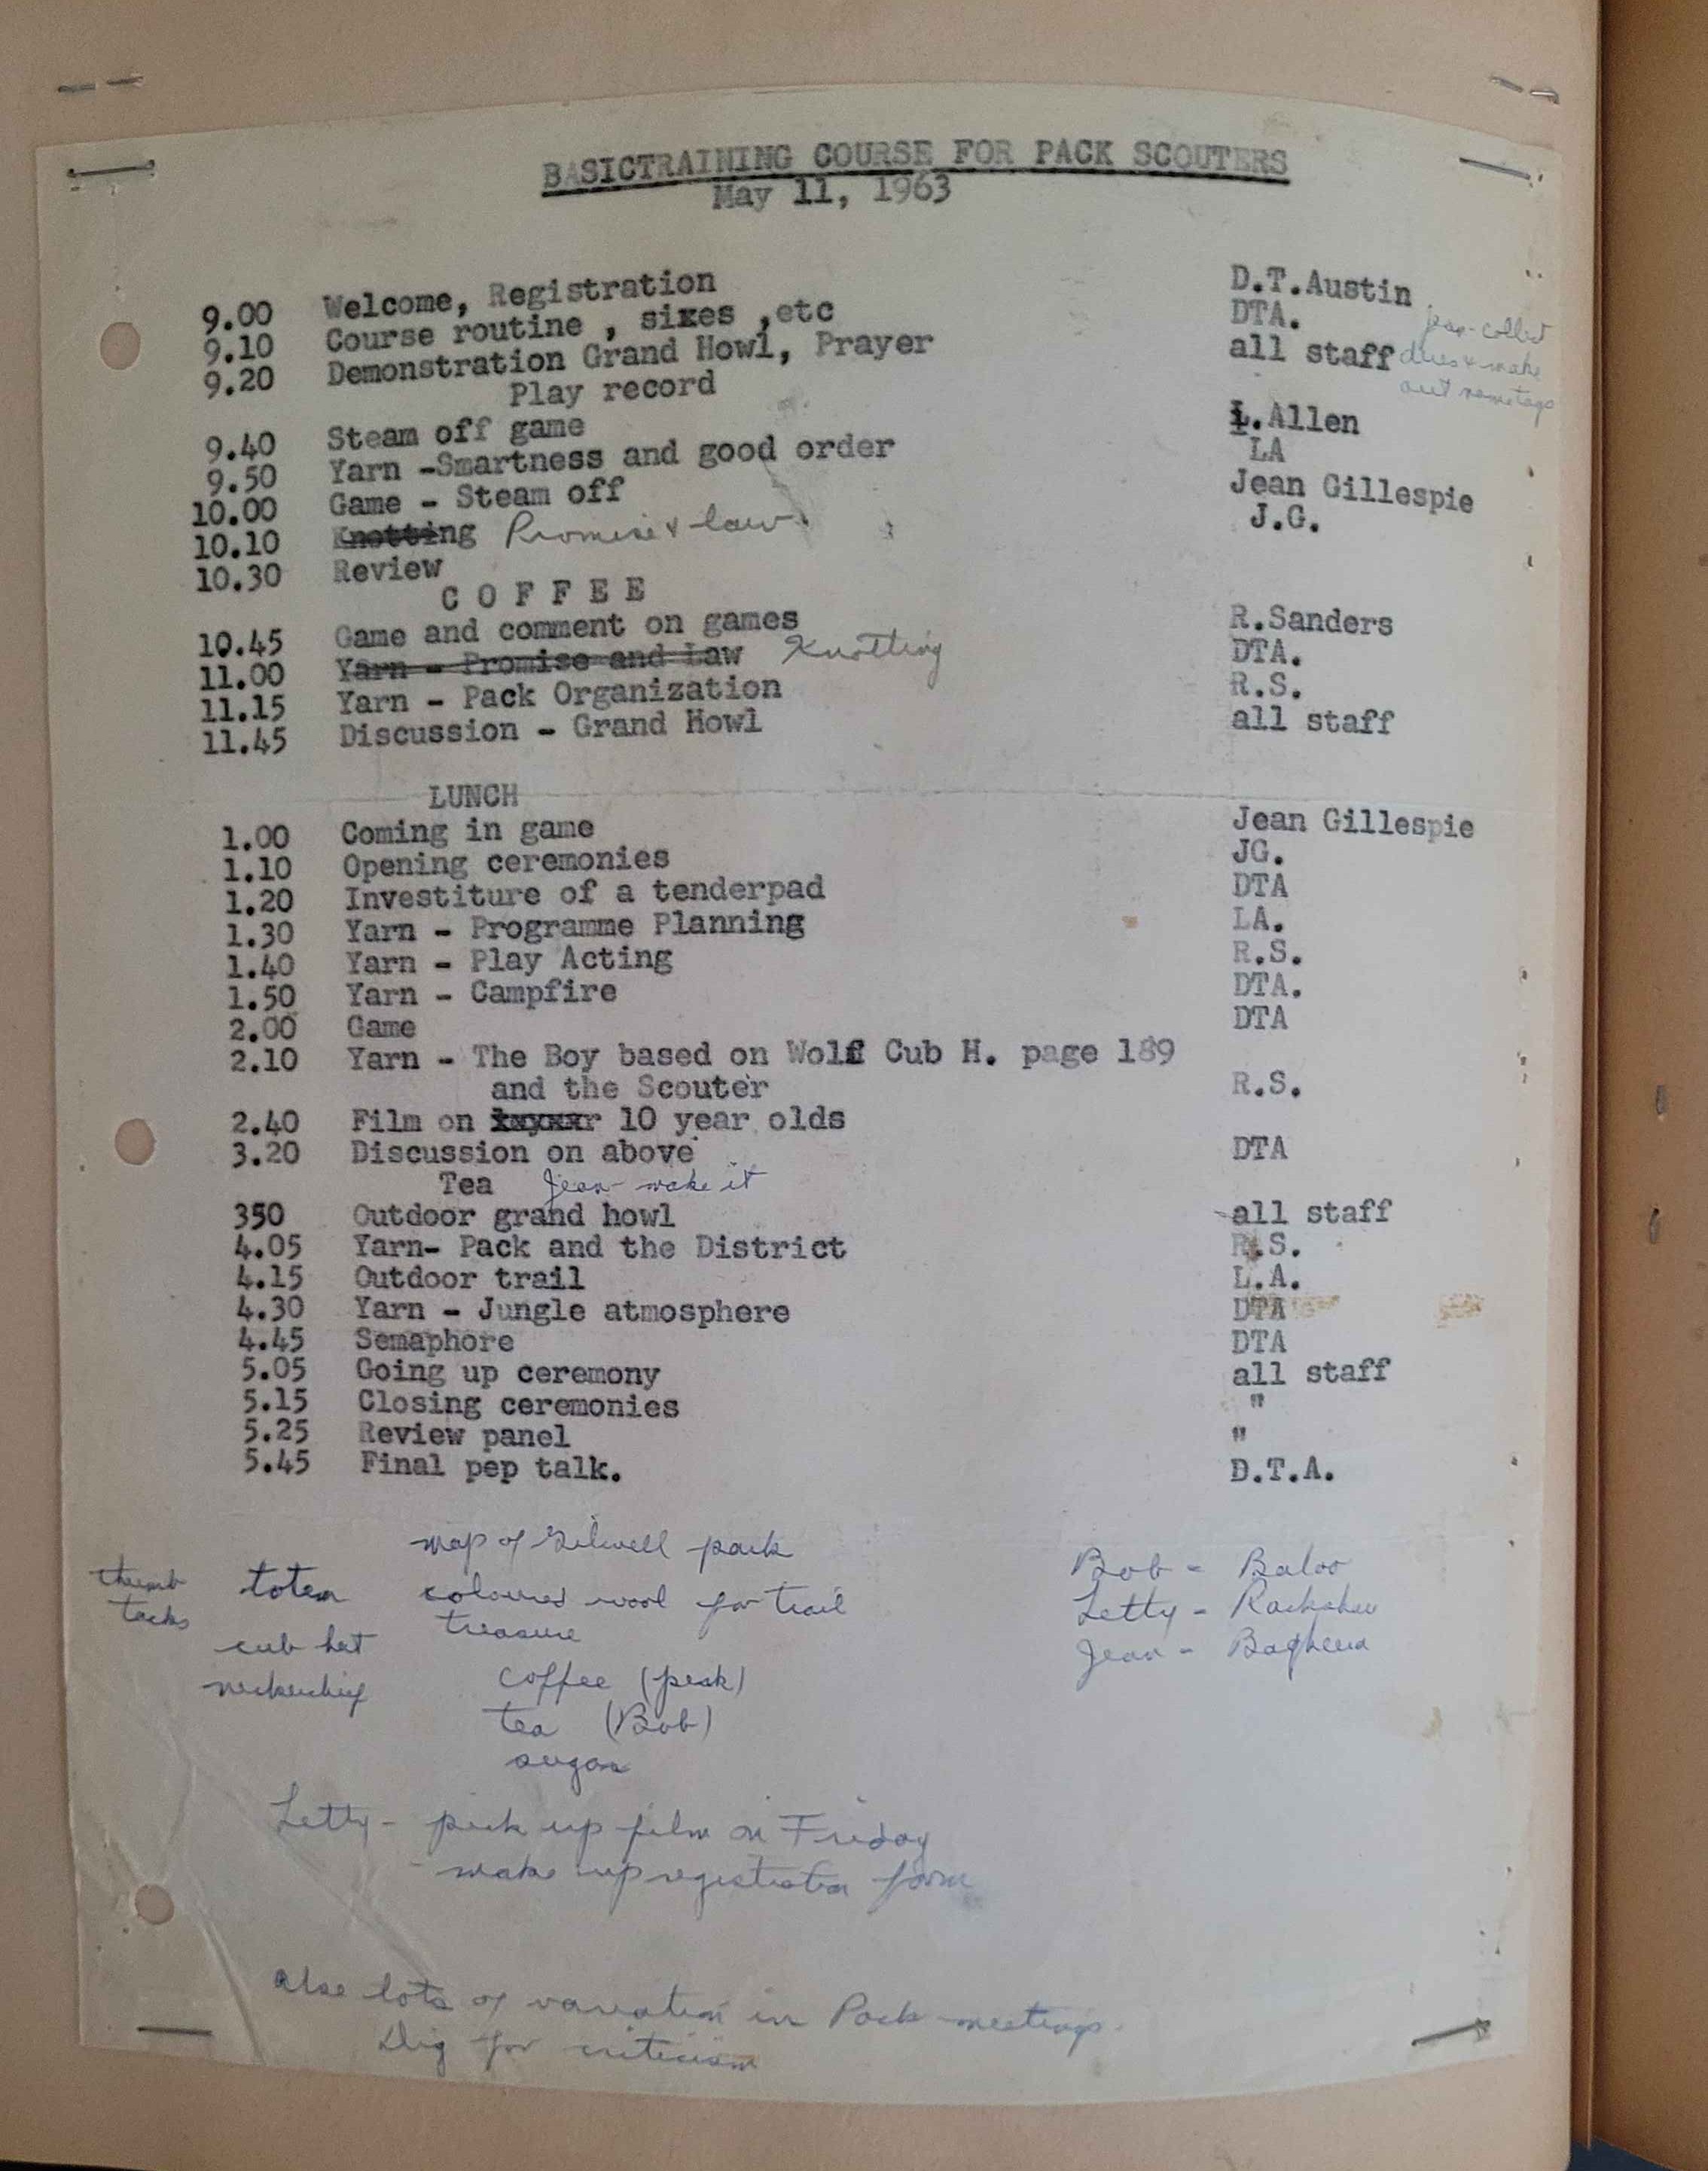 BASICTRAINING COURSE FOR PACK SCOUTERS
May 11, 1963
9.00 Welcome, Registration D.T.Austin
9.10 Course routine , sixes ,etc DTA. collect
9.20 Demonstration Grand Howl, Prayer all staff dues & make
Play record out nametags
9.40 Steam off game L.Allen
9.50 Yarn -Smartness and good order LA
10.00 Game - Steam off Jean Gillespie
10.10 Knotting Promise & law J.G.
10.30 Review
C O F F E E
10.45 Game and comment on games R.Sanders
11.00 Yarn - Promise and Law Knotting DTA.
11.15 Yarn - Pack Organization R.S.
11.45 Discussion - Grand Howl all staff
LUNCH
1.00 Coming in game Jean Gillespie
1.10 Opening ceremonies JG.
1.20 Investiture of a tenderpad DTA
1.30 Yarn - Programme Planning LA.
1.40 Yarn - Play Acting R.S.
1.50 Yarn - Campfire DTA.
2.00 Game DTA
2.10 Yarn - The Boy based on Wolf Cub H. page 189
and the Scouter R.S.
2.40 Film on 10 year olds
3.20 Discussion on above DTA
Tea Jean - make it
350 Outdoor grand howl all staff
4.05 Yarn- Pack and the District R.S.
4.15 Outdoor trail L.A.
4.30 Yarn - Jungle atmosphere DTA
4.45 Semaphore DTA
5.05 Going up ceremony all staff
5.15 Closing ceremonies "
5.25 Review panel "
5.45 Final pep talk. D.T.A.
map of Gilwell park
thumb tacks
totem
coloured wool for trail
treasure
cub hat
neckerchief
coffee (perk)
tea (Bob)
sugar
Bob - Baloo
Letty - Rackshaw
Jean - Bagheera
Letty - pick up film on Friday
- make up registration form
Also lots of variation in Pack meetings.
Dig for criticism